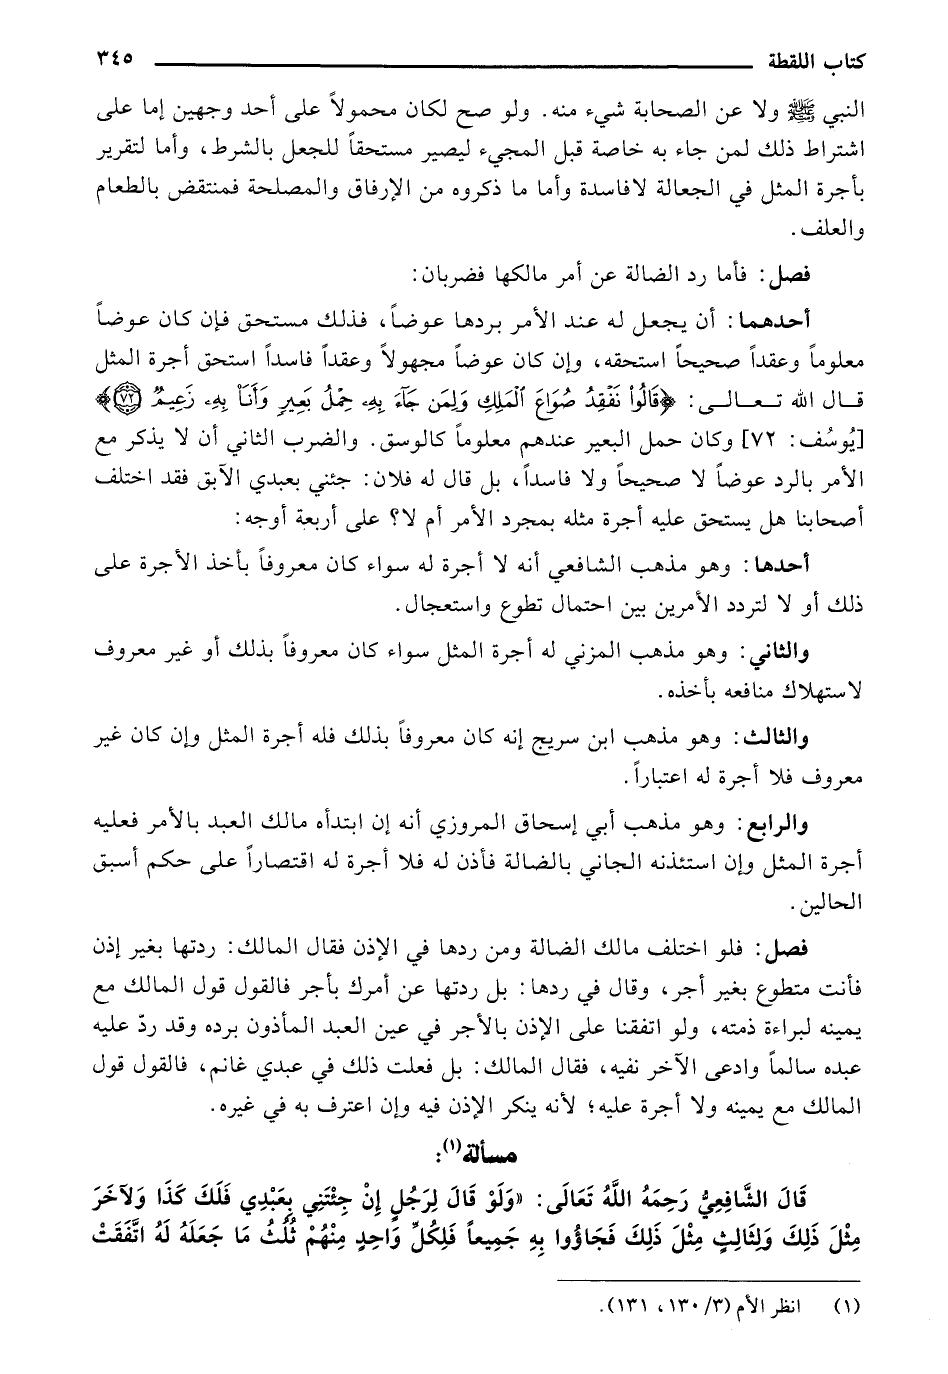 كتاب اللقطة ٣٤٥
النبي ﷺ ولا عن الصحابة شيء منه. ولو صح لكان محمولاً على أحد وجهين إما على
اشتراط ذلك لمن جاء به خاصة قبل المجيء ليصير مستحقاً للجعل بالشرط، وأما لتقرير
بأجرة المثل في الجعالة لافاسدة وأما ما ذكروه من الإرفاق والمصلحة فمنتقض بالطعام
والعلف.
فصل: فأما رد الضالة عن أمر مالكها فضربان:
أحدهما: أن يجعل له عند الأمر بردها عوضاً، فذلك مستحق فإن كان عوضاً
معلوماً وعقداً صحيحاً استحقه، وإن كان عوضاً مجهولاً وعقداً فاسداً استحق أجرة المثل
قال الله تعالى: ﴿قَالُوا۟ نَفْقِدُ صُوَاعَ ٱلْمَلِكِ وَلِمَن جَآءَ بِهِۦ حِمْلُ بَعِيرٍ وَأَنَا۠ بِهِۦ زَعِيمٌ ٧٢﴾
[يُوسُف: ٧٢] وكان حمل البعير عندهم معلوماً كالوسق. والضرب الثاني أن لا يذكر مع
الأمر بالرد عوضاً لا صحيحاً ولا فاسداً، بل قال له فلان: جئني بعبدي الآبق فقد اختلف
أصحابنا هل يستحق عليه أجرة مثله بمجرد الأمر أم لا؟ على أربعة أوجه:
أحدها: وهو مذهب الشافعي أنه لا أجرة له سواء كان معروفاً بأخذ الأجرة على
ذلك أو لا لتردد الأمرين بين احتمال تطوع واستعجال.
والثاني: وهو مذهب المزني له أجرة المثل سواء كان معروفاً بذلك أو غير معروف
لاستهلاك منافعه بأخذه.
والثالث: وهو مذهب ابن سريج إنه كان معروفاً بذلك فله أجرة المثل وإن كان غير
معروف فلا أجرة له اعتباراً.
والرابع: وهو مذهب أبي إسحاق المروزي أنه إن ابتدأه مالك العبد بالأمر فعليه
أجرة المثل وإن استئذنه الجاني بالضالة فأذن له فلا أجرة له اقتصاراً على حكم أسبق
الحالين.
فصل: فلو اختلف مالك الضالة ومن ردها في الإذن فقال المالك: ردتها بغير إذن
فأنت متطوع بغير أجر، وقال في ردها: بل ردتها عن أمرك بأجر فالقول قول المالك مع
يمينه لبراءة ذمته، ولو اتفقنا على الإذن بالأجر في عين العبد المأذون برده وقد ردّ عليه
عبده سالماً وادعى الآخر نفيه، فقال المالك: بل فعلت ذلك في عبدي غانم، فالقول قول
المالك مع يمينه ولا أجرة عليه؛ لأنه ينكر الإذن فيه وإن اعترف به في غيره.
مسألة(١):
قَالَ الشَّافِعِيُّ رَحِمَهُ اللَّهُ تَعَالَى: «وَلَوْ قَالَ لِرَجُلٍ إِنْ جِئْتَنِي بِعَبْدِي فَلَكَ كَذَا وَلآخَرَ
مِثْلَ ذَلِكَ وَلِثَالِثٍ مِثْلَ ذَلِكَ فَجَاؤُوا بِهِ جَمِيعاً فَلِكُلِّ وَاحِدٍ مِنْهُمْ ثُلُثُ مَا جَعَلَهُ لَهُ اتَّفَقَتْ
(١) انظر الأم (٣/ ١٣٠، ١٣١).